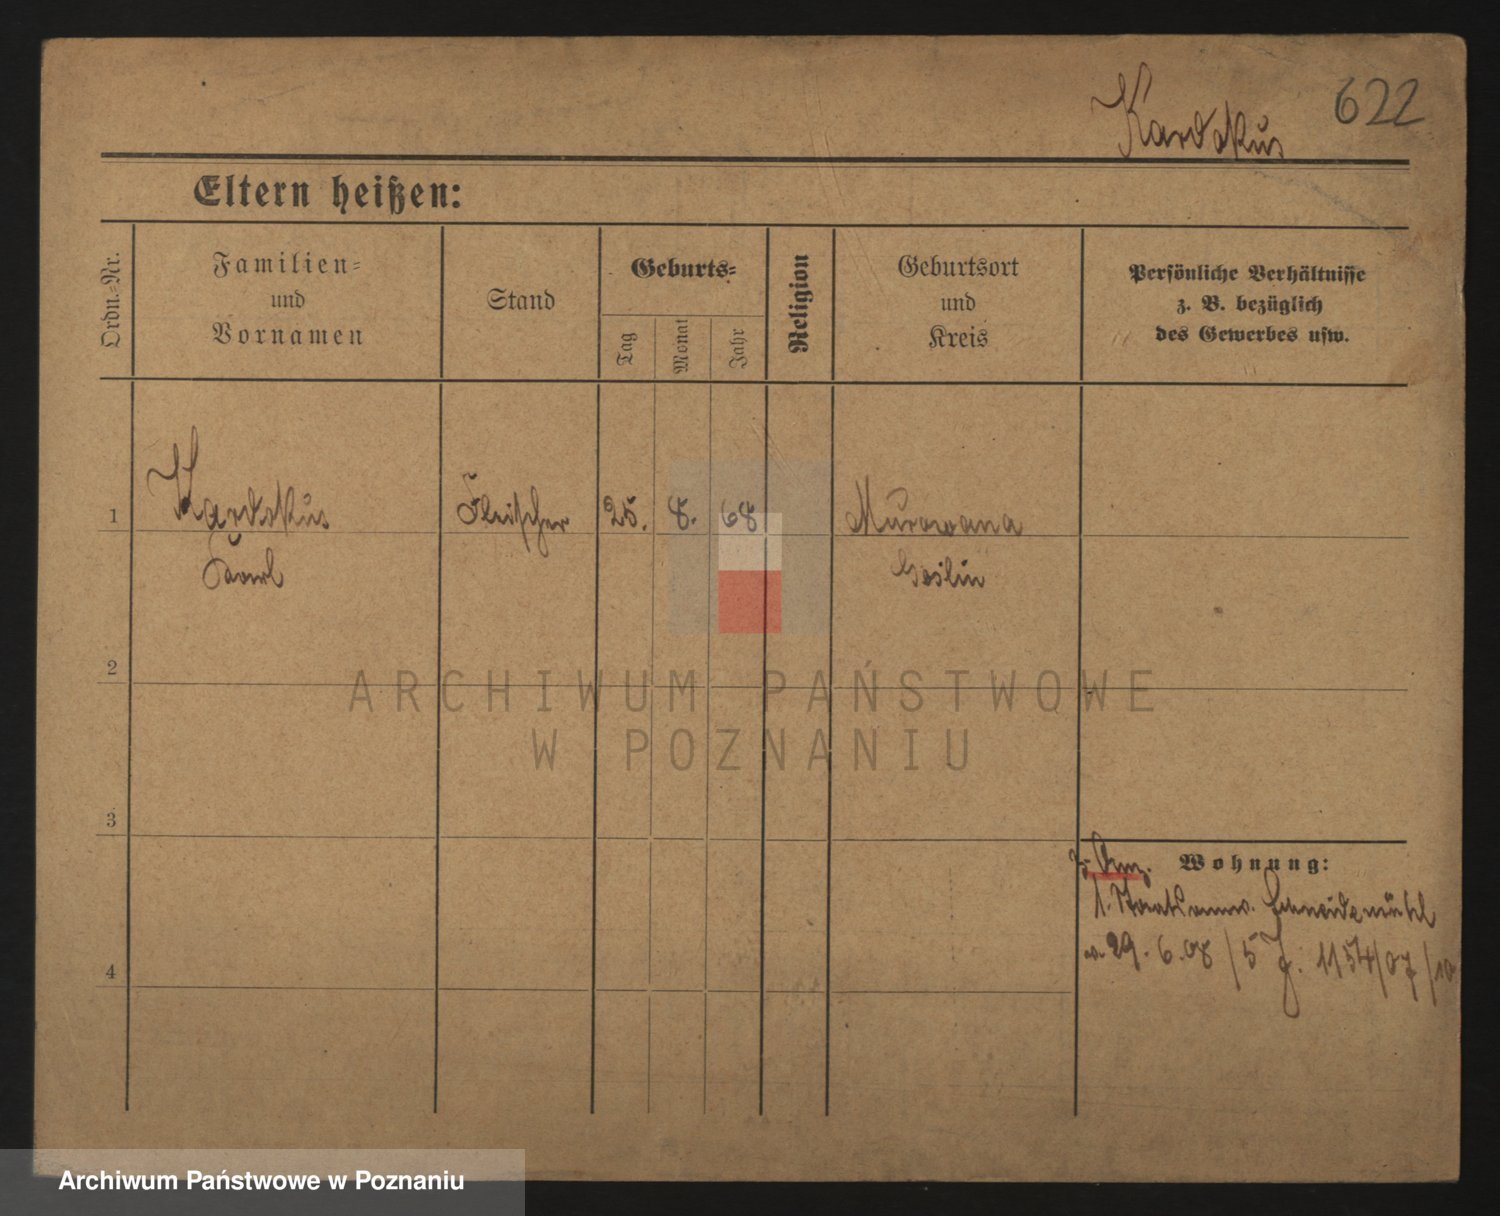 Kardskus
622
Eltern heißen:
Ordn.=Nr.
Familien=
und
Vornamen
Stand
Geburts=
Tag
Monat
Jahr
Religion
Geburtsort
und
Kreis
Persönliche Verhältnisse
z. B. bezüglich
des Gewerbes usw.
1
Kardskus
Karl
Fleischer
25.
8.
68
Murowana
Goslin
2
ARCHIWUM PAŃSTWOWE
W POZNANIU
3
Wohnung:
1. Staatsanw. Schneidemühl
v. 29. 6. 08 / 5 J. 1154/07 / 10
4
Archiwum Państwowe w Poznaniu